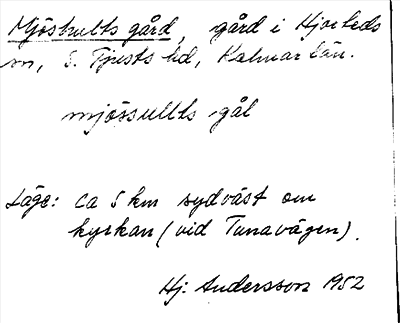 Mjöshults gård, gård i Hjorteds
sn, S. Tjusts hd, Kalmar län.
mjössullts gål
Läge: ca 5 km sydväst om
kyrkan (vid Tunavägen).
Hj. Andersson 1952